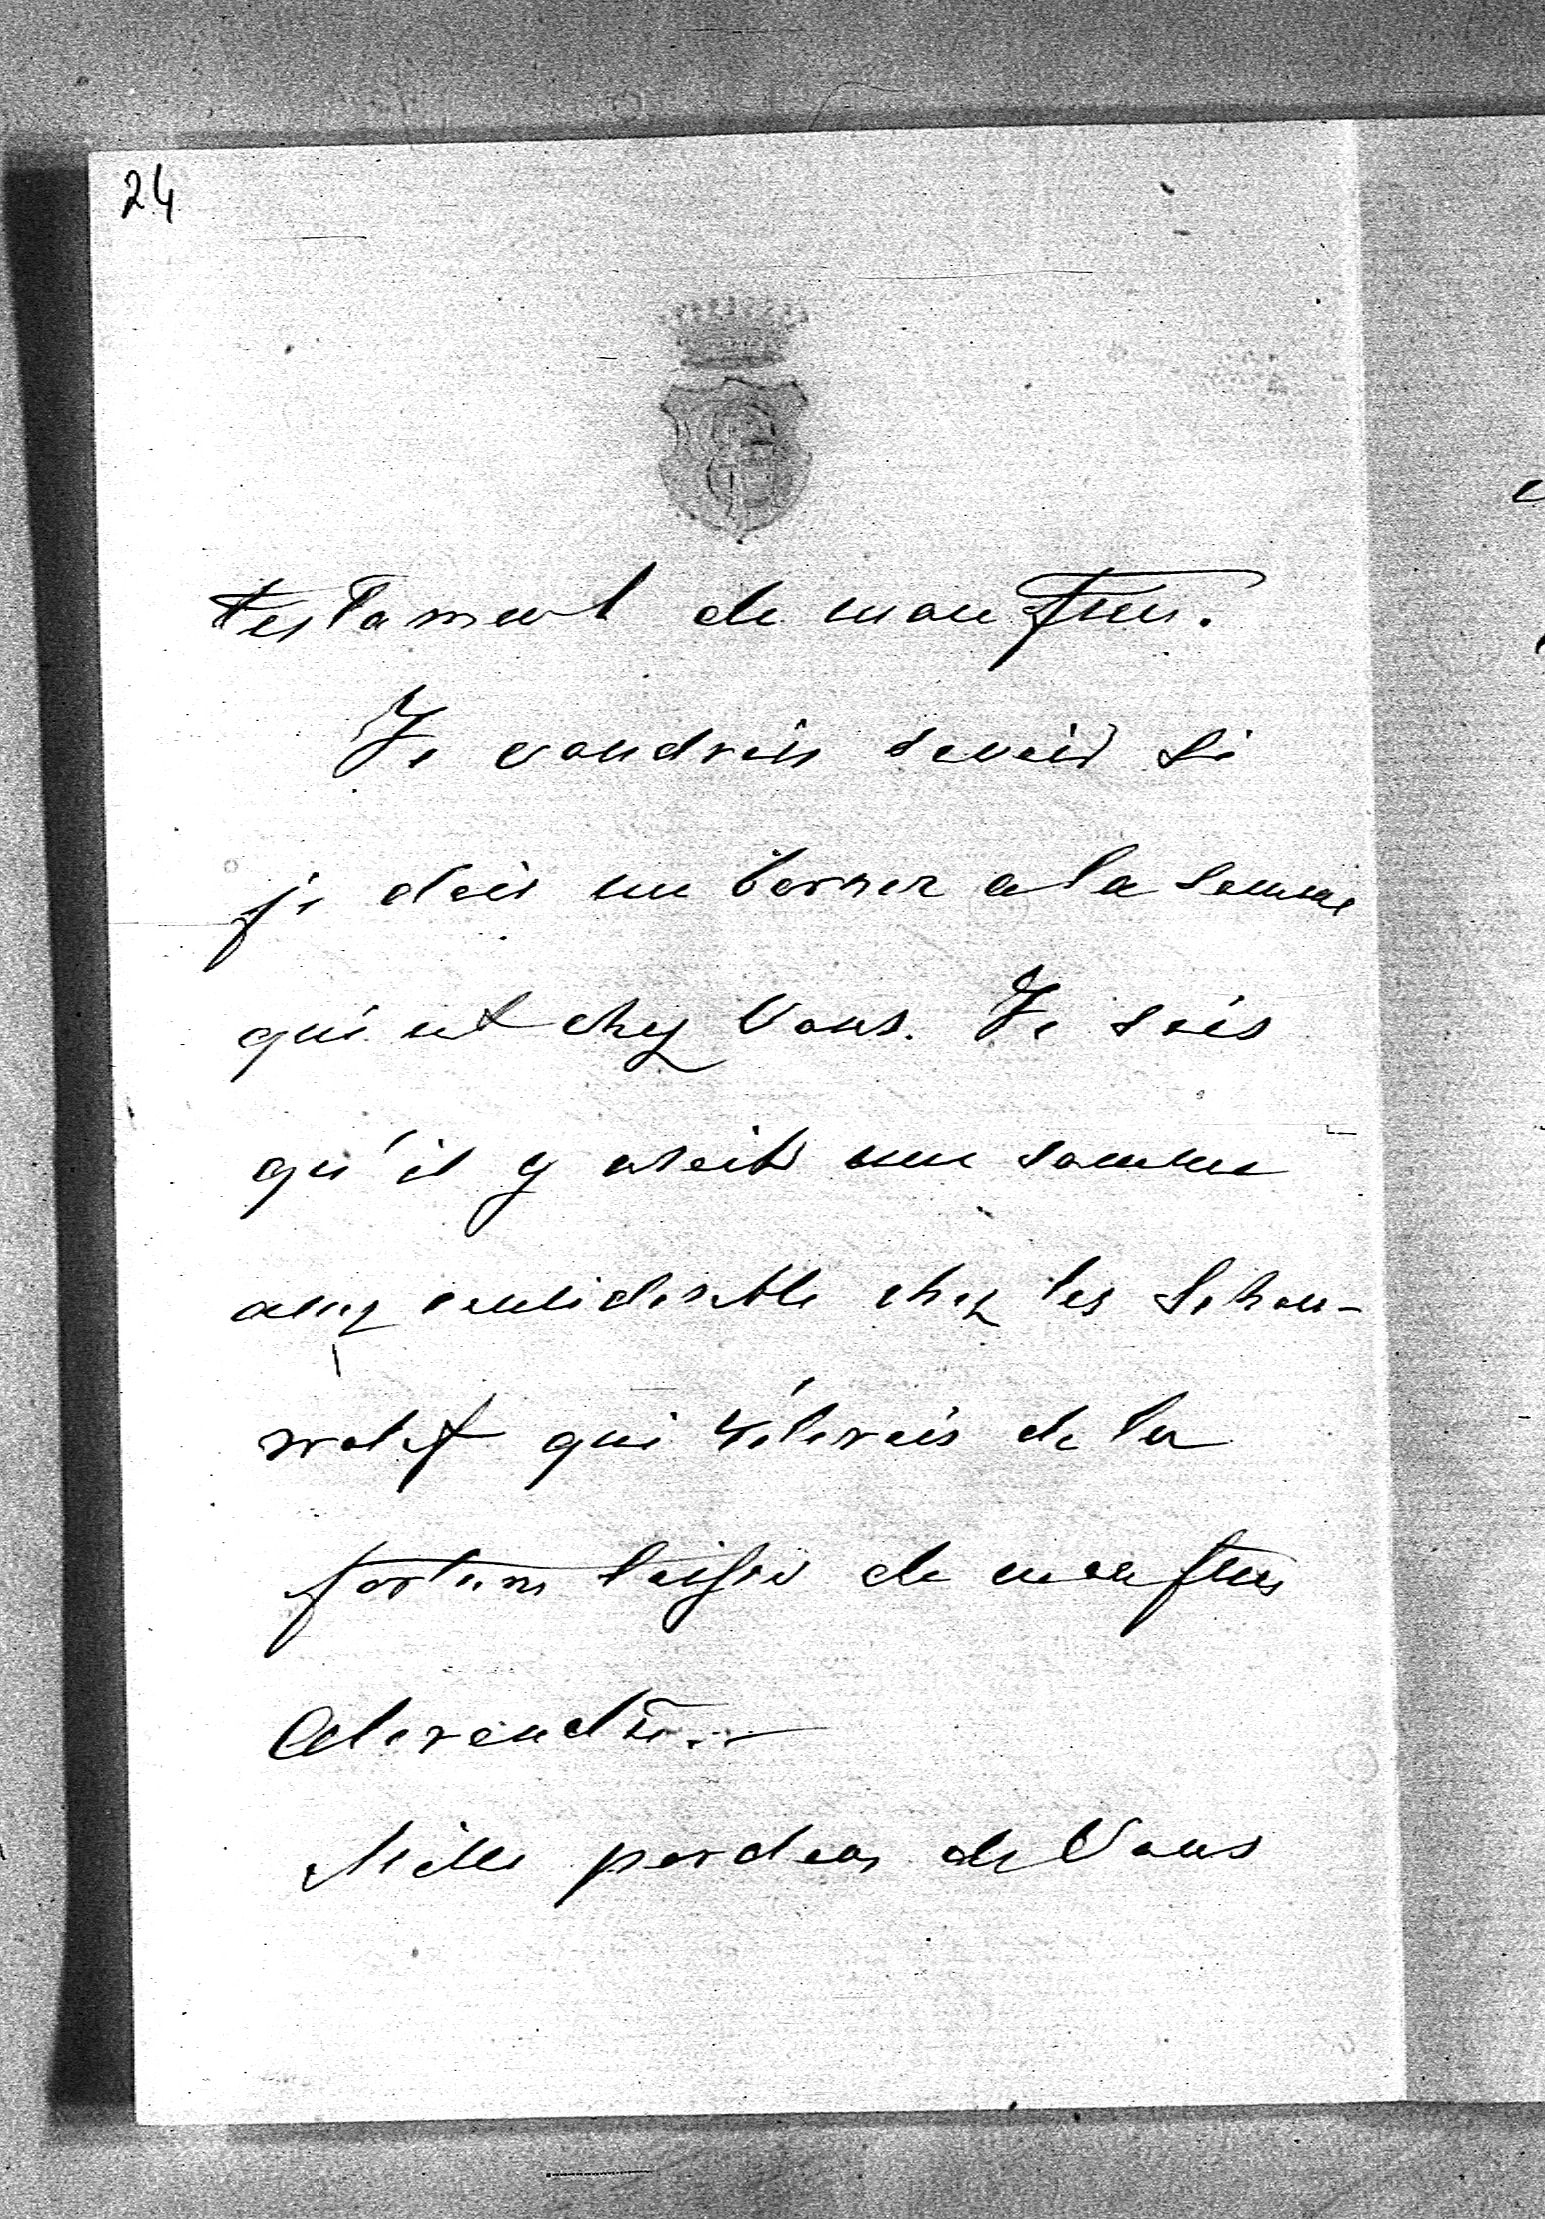 24
testament de mon frere.
Je voudrais savoir si
je dois me borner a la somme
qui est chez Vous. Je sais
qu'il y avait une somme
assez considerable chez les Schou-
waloff qui de la
fortune laissée de mon frere
Mille pardons de Vous